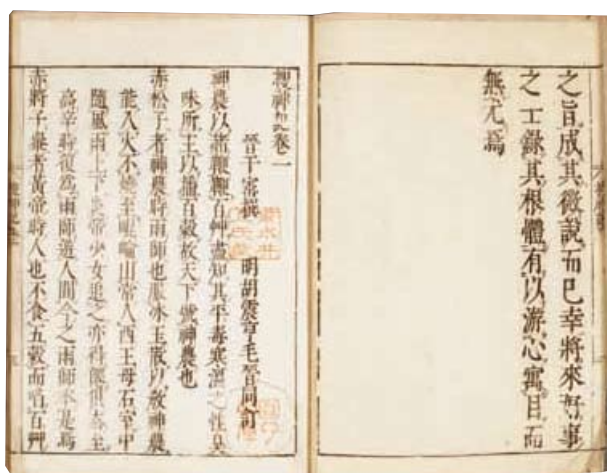 之旨成其微說而已幸將來好事
之士錄其根體有以游心寓目而
無尤焉
搜神記卷一
晉干寶撰 明胡震亨毛晉同訂
神農以赭鞭鞭百艸盡知其平毒寒溫之性臭
味所主以播百穀故天下號神農也
赤松子者神農時雨師也服冰玉散以教神農
能入火不燒至崐崘山常入西王母石室中
隨風雨上下炎帝少女追之亦得僊俱去至
高辛時復爲雨師遊人間今之雨師本是焉
赤將子轝者黃帝時人也不食五穀而啗百艸